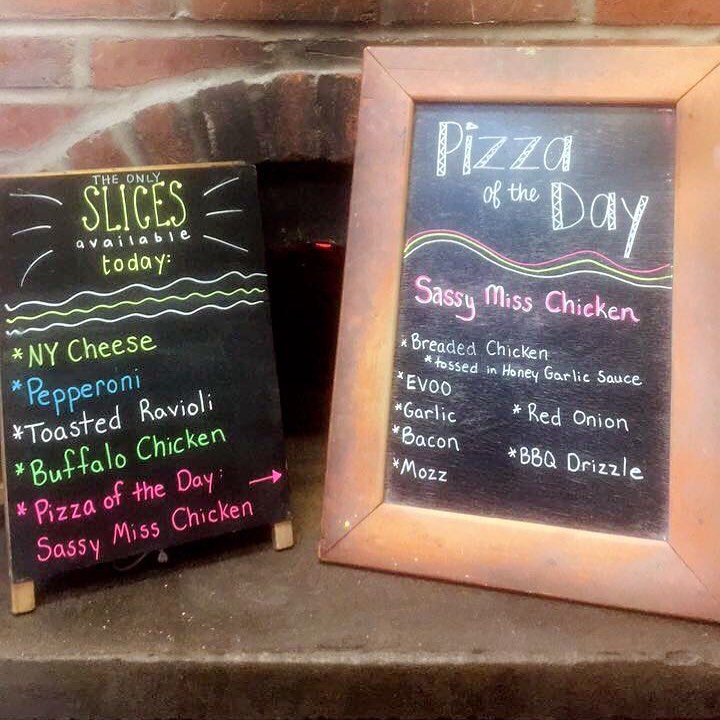 THE ONLY
SLICES
available
today:
*NY Cheese
*Pepperoni
*Toasted Ravioli
*Buffalo Chicken
*Pizza of the Day:
Sassy Miss Chicken
Pizza
of the Day
Sassy Miss Chicken
*Breaded Chicken
*tossed in Honey Garlic Sauce
*EVOO
*Garlic
*Red Onion
*Bacon
*BBQ Drizzle
*Mozz